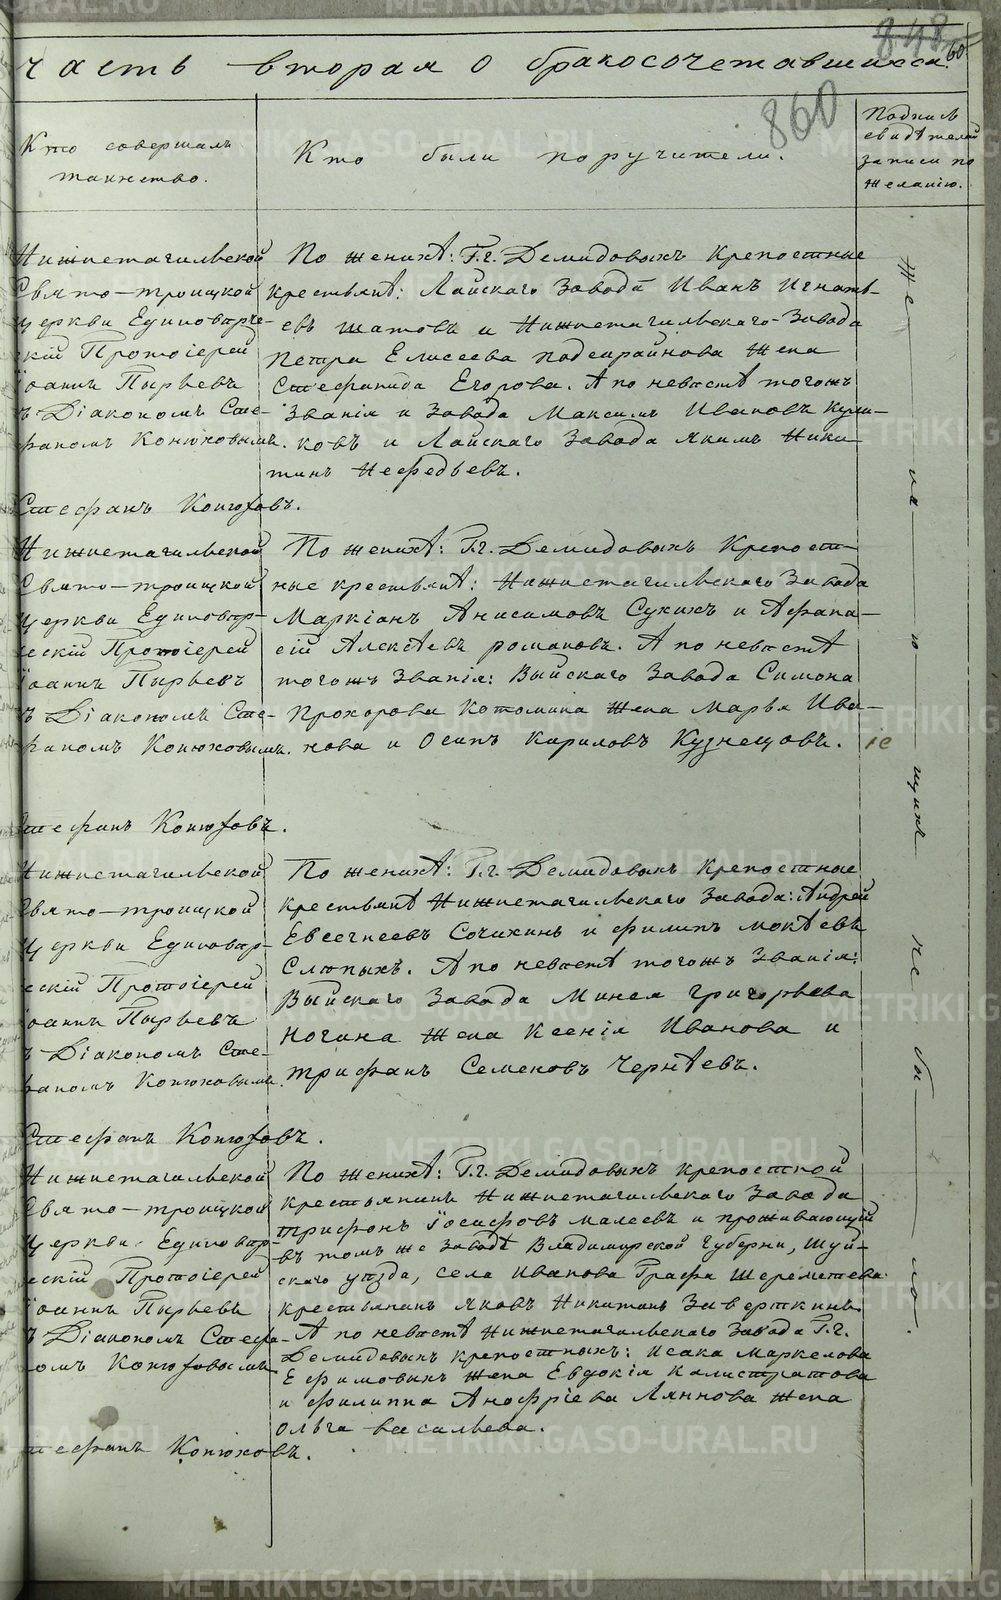 848
60
часть вторая о бракосочетавшихся.
860
Кто совершалъ
таинство.
Кто были поручители.
Подпись
свидѣтелей
записи по
желанію.
Нижнетагильской
Свято-троицкой
Церкви Единовѣрче-
скій Протоіерей
Іоаннъ Пырьевъ
съ Діакономъ Сте-
фаномъ Конюховымъ.
По женихѣ: Г.г. Демидовыхъ Крепостные
крестьянѣ: Лайскаго Завода Иванъ Игнать-
евъ Шатовъ и Нижнетагильскаго-Завода
Петра Елисеева Подсарайнова Жена
Степанида Егорова. А по невѣстѣ тогожъ
Званія и Завода Максимъ Ивановъ Кули-
ковъ и Лайскаго Завода Якимъ Ники-
тинъ Нефедьевъ.
Стефанъ Конюховъ.
Нижнетагильской
Свято-троицкой
Церкви Единовѣр-
ческій Протоіерей
Іоаннъ Пырьевъ
съ Діакономъ Сте-
фаномъ Конюховымъ.
По женихѣ: Г.г. Демидовыхъ Крепост-
ные крестьянѣ: Нижнетагильскаго Завода
Маркіанъ Анисимовъ Сухихъ и Афана-
сій Алексѣевъ романовъ. А по невѣстѣ
тогожъ Званія: Выйскаго Завода Симона
Прохорова Котомина Жена Марья Ива-
нова и Осипъ Кириловъ Кузнецовъ.
Стефанъ Конюховъ.
Нижнетагильской
Свято-троицкой
Церкви Единовѣр-
ческій Протоіерей
Іоаннъ Пырьевъ
съ Діакономъ Сте-
фаномъ Конюховымъ.
По женихѣ: Г.г. Демидовыхъ Крепостные
крестьянѣ Нижнетагильскаго Завода: Андрей
Евсегнеевъ Сочихинъ и филипъ мокѣевъ
Слѣпыхъ. А по невѣстѣ тогожъ Званія:
Выйскаго Завода Минея григорьева
Ногина Жена Ксенія Иванова и
трифанъ Семеновъ Чернѣевъ.
Стефанъ Конюховъ.
Нижнетагильской
Свято-троицкой
Церкви Единовѣр-
ческій Протоіерей
Іоаннъ Пырьевъ
съ Діакономъ Стефа-
номъ Конюховымъ
По женихѣ: Г.г. Демидовыхъ крепостной
крестьянинъ Нижнетагильскаго Завода
трифонъ Іосифовъ малеевъ и проживающій
въ томъ же Заводѣ Владимирской Губерни, Шуй-
скаго уѣзда, села Иванова Графа Шереметева
крестьянинъ Яковъ Никитинъ Заверткинъ.
А по невѣстѣ Нижнетагильскаго Завода Г.г.
Демидовыхъ крепостныхъ: Исака Маркелова
Ефимовыхъ Жена Евдокія Калистратова
и филиппа Анофріева Ляпнова Жена
Ольга васильева.
Стефанъ Конюховъ.
Же ла ю щихъ не бы ло.
METRIKI.GASO-URAL.RU